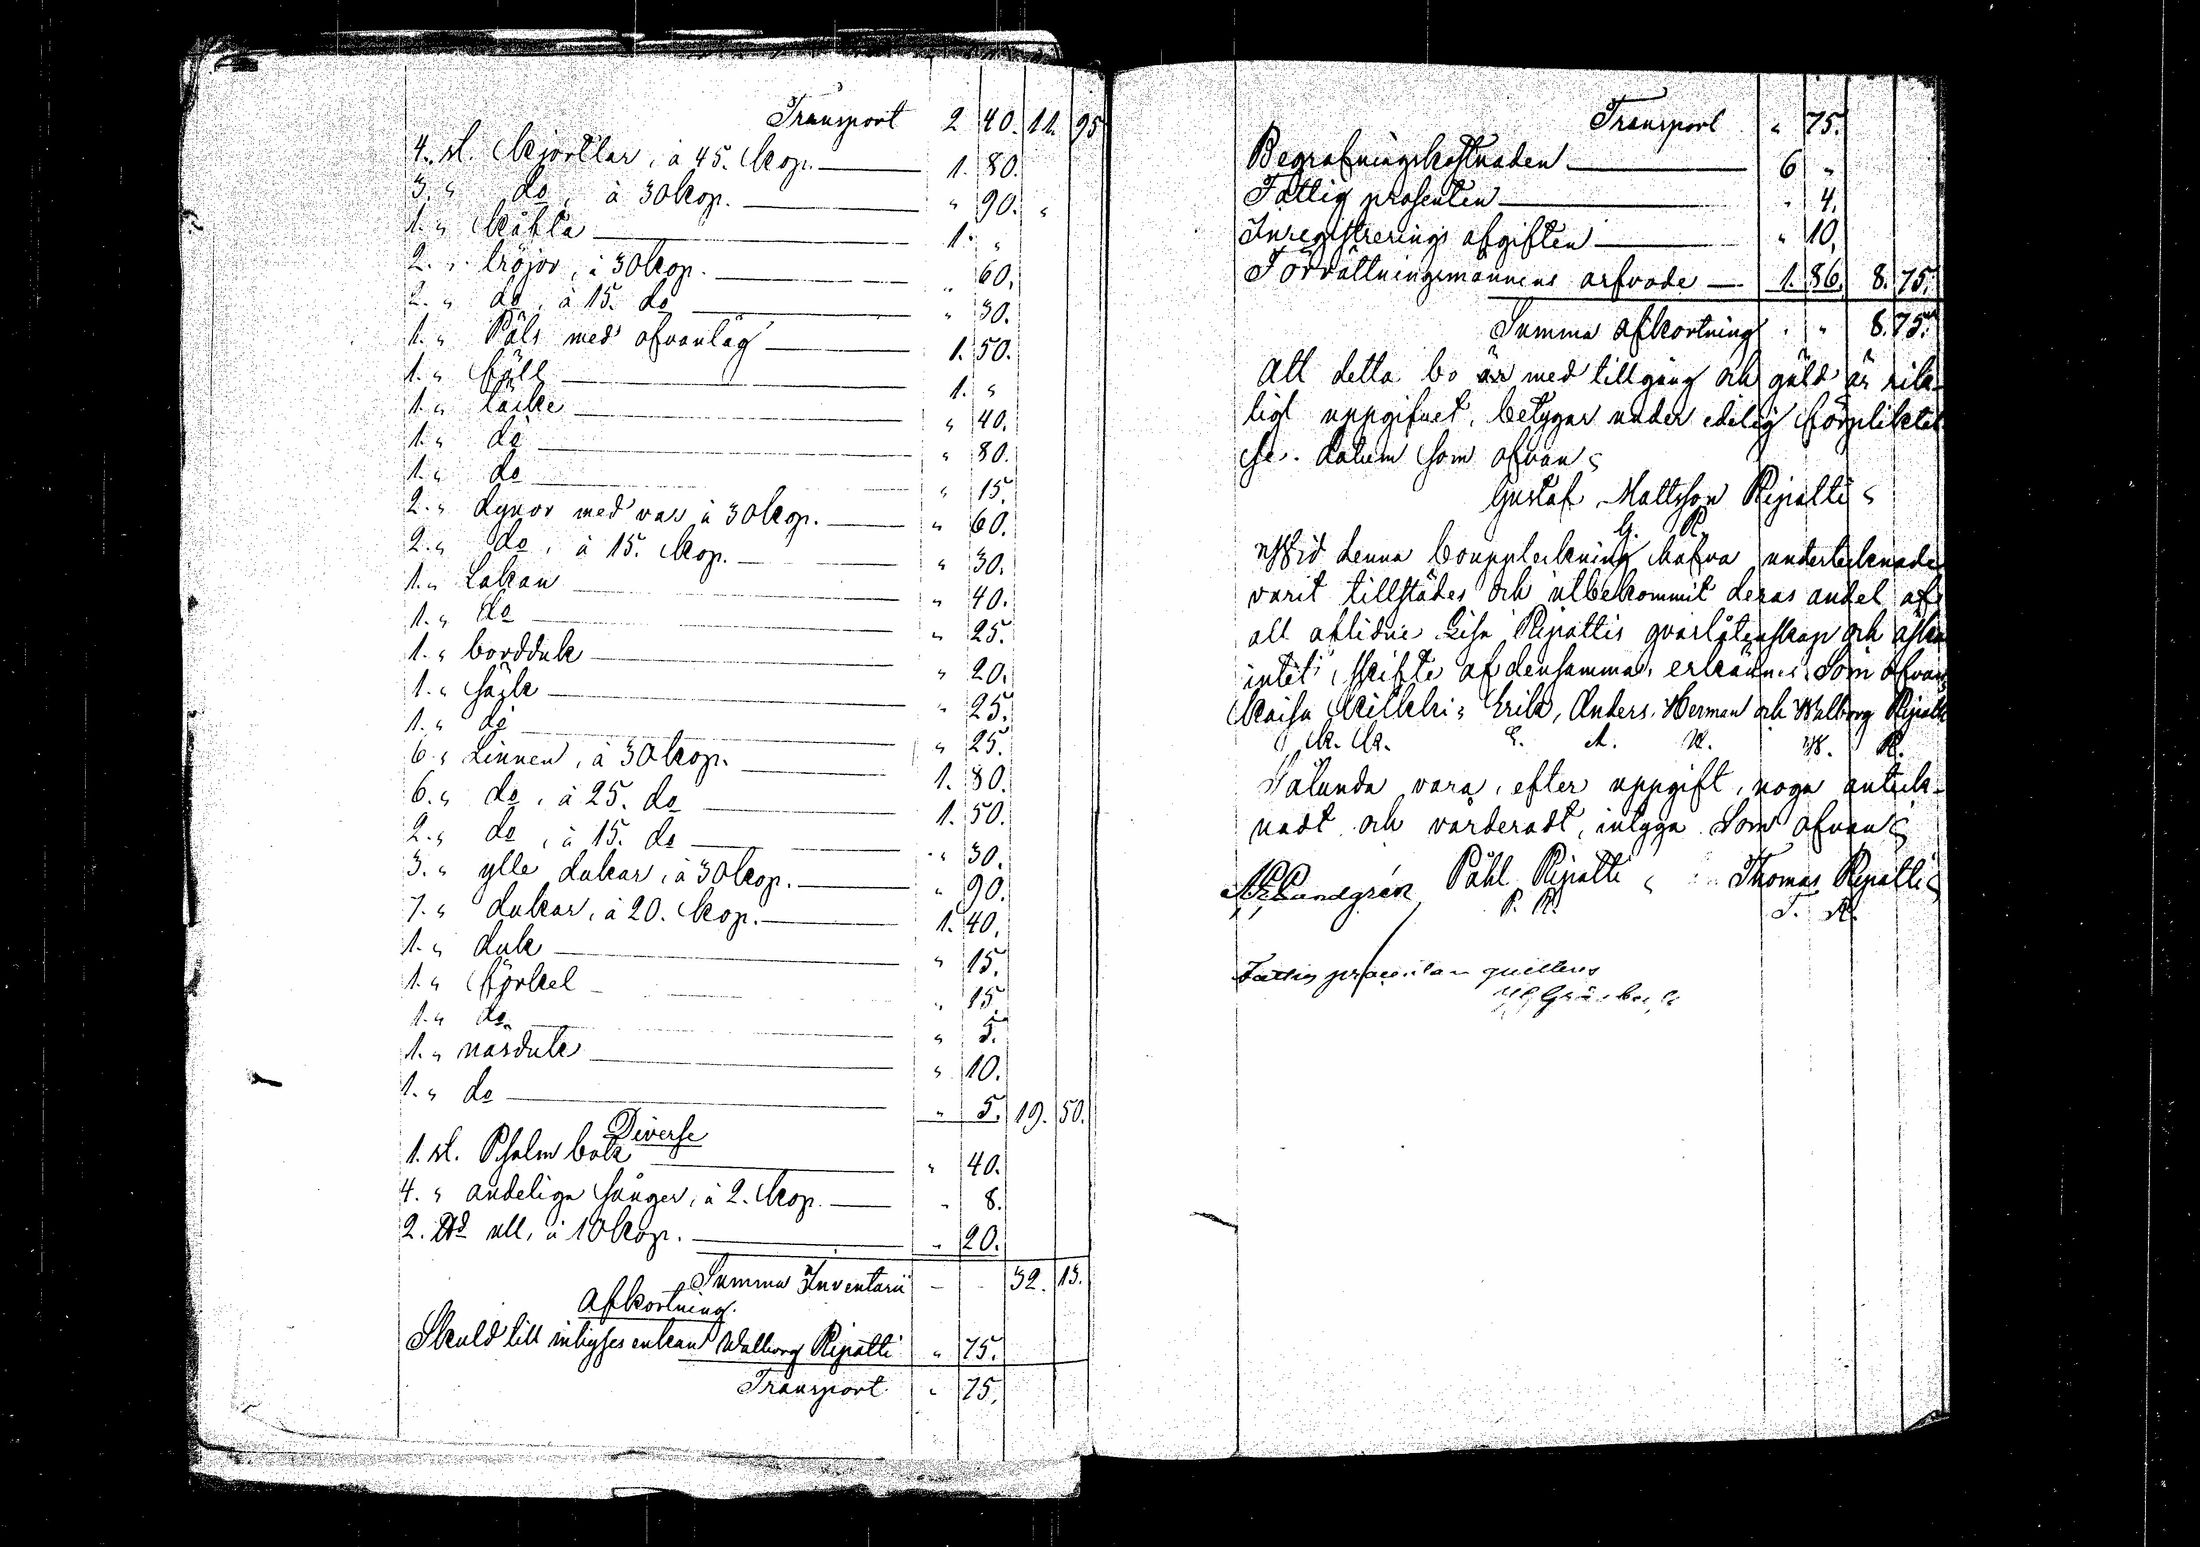 Transport 2 40. 11. 95
4. st. kjortlar, à 45. kop. 1. 80.
3. " do, à 30 kop. " 90. "
1. " 1. "
2. " tröjor, à 30 kop. " 60.
2. " do, à 15. do " 30.
1. " Päls med ofvantåg 1. 50.
1. " fäll 1. "
1. " täcke " 40.
1. " do " 80.
1. " do " 15.
2. " dynor med var à 30 kop. " 60.
2. " do, à 15. kop. " 30.
1. " Lakan " 40.
1. " do " 25.
1. " bordduk " 20.
1. " säck " 25.
1. " do " 25.
6. " Linnen, à 30 kop. 1. 80.
6. " do, à 25. do 1. 50.
2. " do, à 15. do " 30.
3. " ylle dukar, à 30 kop. " 90.
7. " dukar, à 20. kop. 1. 40.
1. " duk " 15.
1. " förkel " 15.
1. " do. " 5.
1. " näsduk " 10.
1. " do " 5. 19. 50.
Diverse
1. st. Psalm bok " 40.
4. " andeliga sånger, à 2. kop. " 8.
2. ull, à 10 kop. " 20.
Summa Inventarii - - 32. 13.
Afkortning.
Skuld till enkan Walborg Ripatti " 75.
Transport " 75.
Transport " 75.
Begrafningskostnaden 6 "
Fattig prosenten " 4.
Inregistrerings afgiften " 10.
Förrättningsmannens arfvode 1. 86. 8. 75.
Summa afkortning " " 8. 75.
Att detta bo är med tillgång och gäld är rik-
tigt uppgifvet, betygar under edelig förpliktel
se. datum som ofvan
Gustaf Mattsson Ripatti
G. R.
Wid denna bouppteckning hafva undertecknade
varit tillstädes och utbekommit deras andel af
all aflidne Lisa Ripattis qvarlåtenskap och äska
intet skifte af densamma, erkännes. Som ofvan
Kaisa Erik, Anders, Herman och Walborg Ripatti
E. A. H. W. R.
Sålunda vara, efter uppgift, noga anteck-
nadt och värderadt, intyga. Som ofvan
Påhl Ripatti Thomas Ripatti
P. R. T. R.
Fattig procentan qvitteras